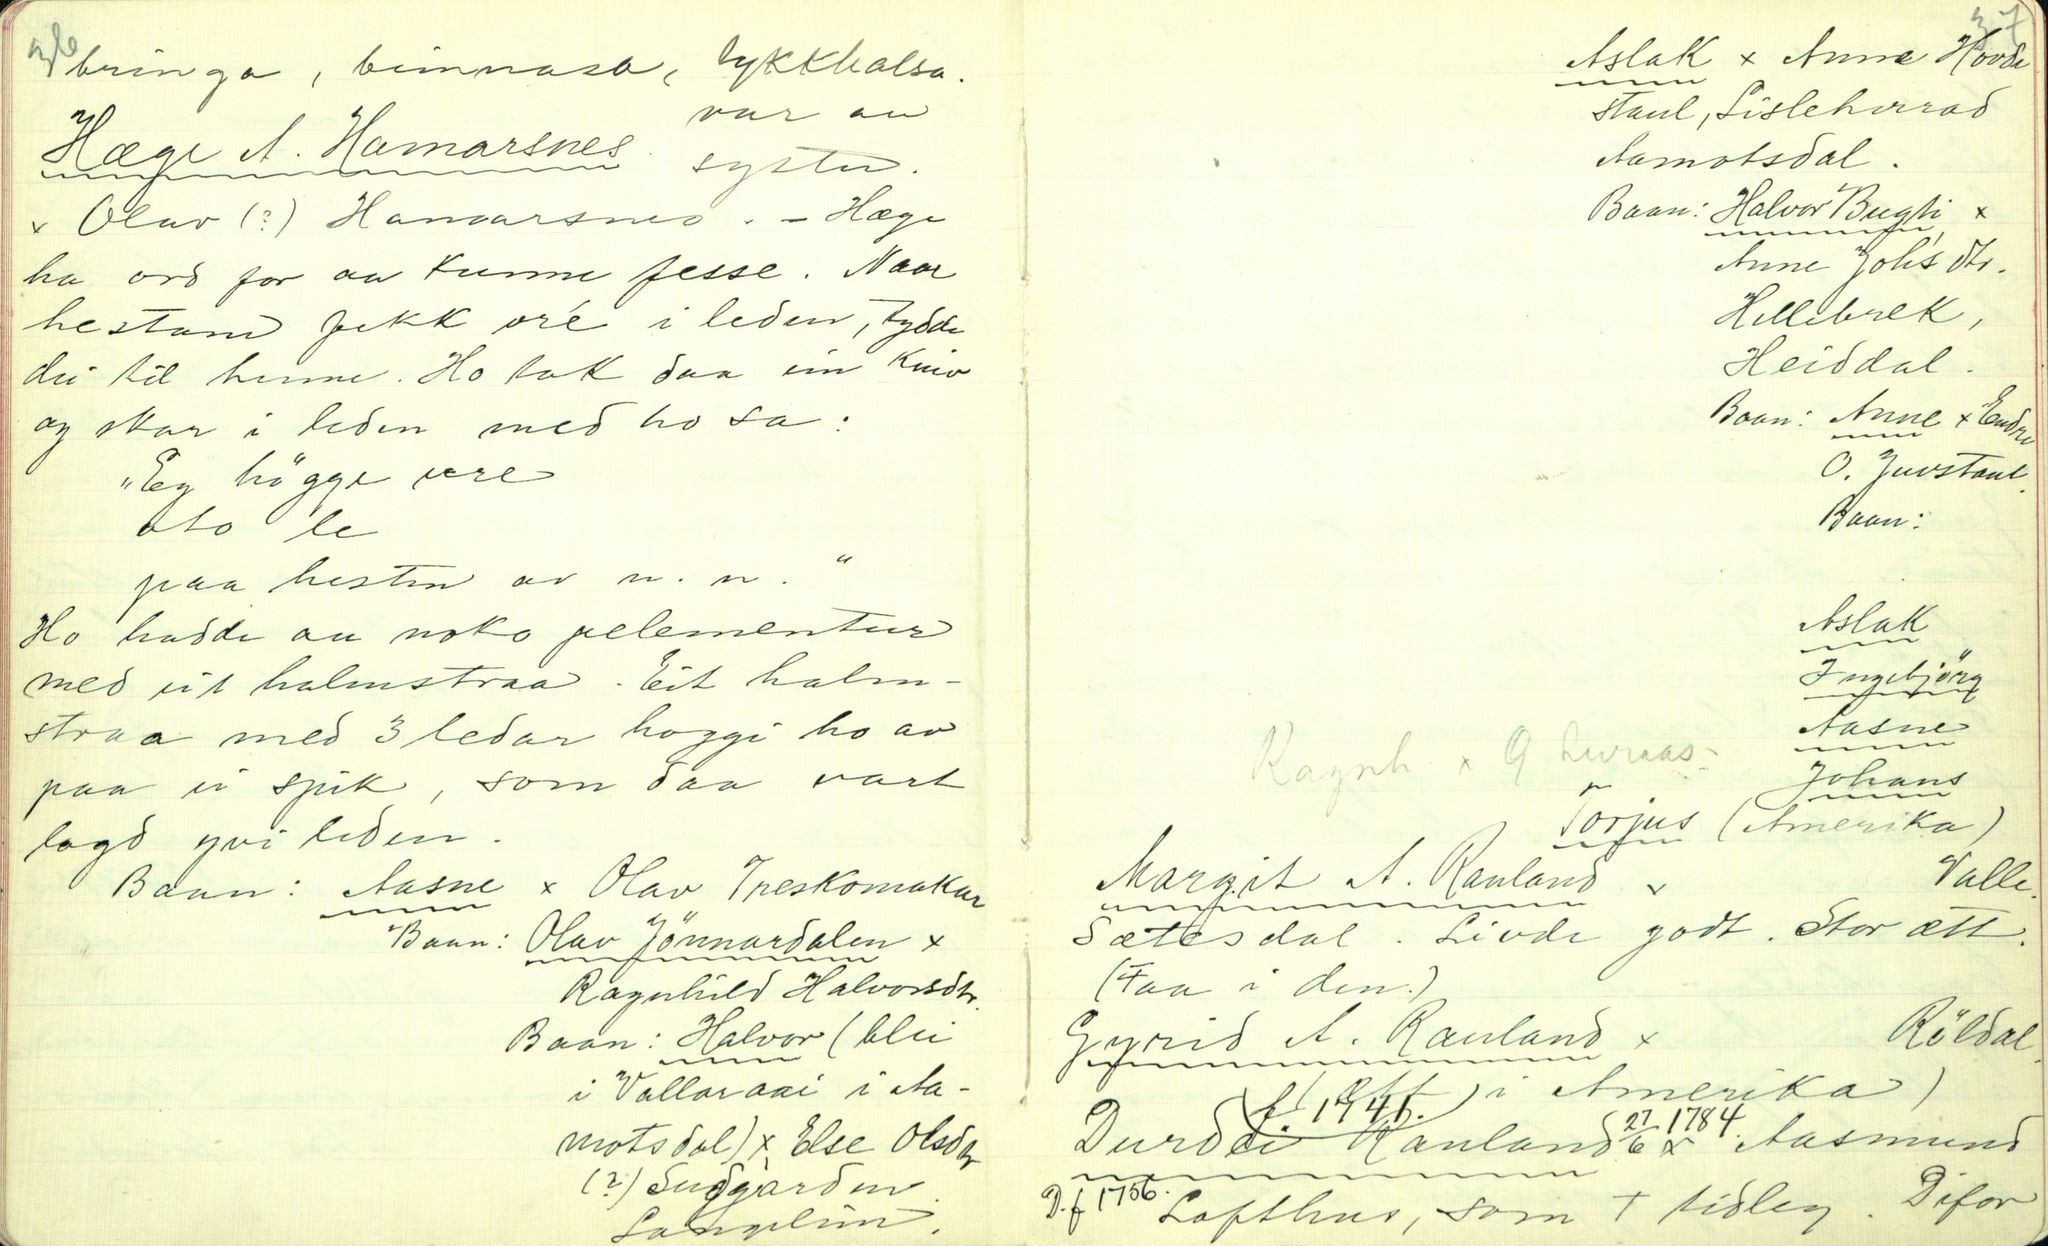 36
bringa, binnasa, tykkhalsa.
Hæge A. Hamarsnes var au
syster.
x Olav (?) Hamarsnes. – Hæge
ha ord for aa kunne fesse. Naar
hestann fekk vre i leden, tydde
dei til henne. Ho tok daa ein kniv
og skar i leden med ho sa:
"Eg högge vre
oto le
paa hesten av n. n."
Ho hadde au noko pelementur
med eit halmstraa. Eit halm-
straa med 3 ledar hoggi ho av
paa ei spik, som daa vart
lagd yvi leden.
Baan: Aasne x Olav Treskomakar
Baan: Olav Jönnardalen x
Ragnhild Halvorsdtr.
Baan: Halvor (blei
i Vallaraai i Aa-
motsdal) x Else Olsdtr
(?) Sudgarden
Langelim.
37
Aslak x Anne Hovde
staul, Lisleherrad
Aamotsdal.
Baan: Halvor Bugti x
Anne Johs dtr.
Hellebrek,
Heiddal.
Baan: Anne x Endre
O. Juvstaul.
Baan:
Aslak
Ingebjörg
Aasne
Johans
Ragnh. x Luraas
Torjus (Amerika)
Margit A. Rauland x Valle
Sætesdal. Livde godt. Stor ætt.
(Faa i den.)
Gyrid A. Rauland x Röldal.
(ætt i Amerika)
f 1741.
Durdei Rauland 27/6 1784 x Aasmund
D. f 1756.
Lofthus, som + tidleg. Difor